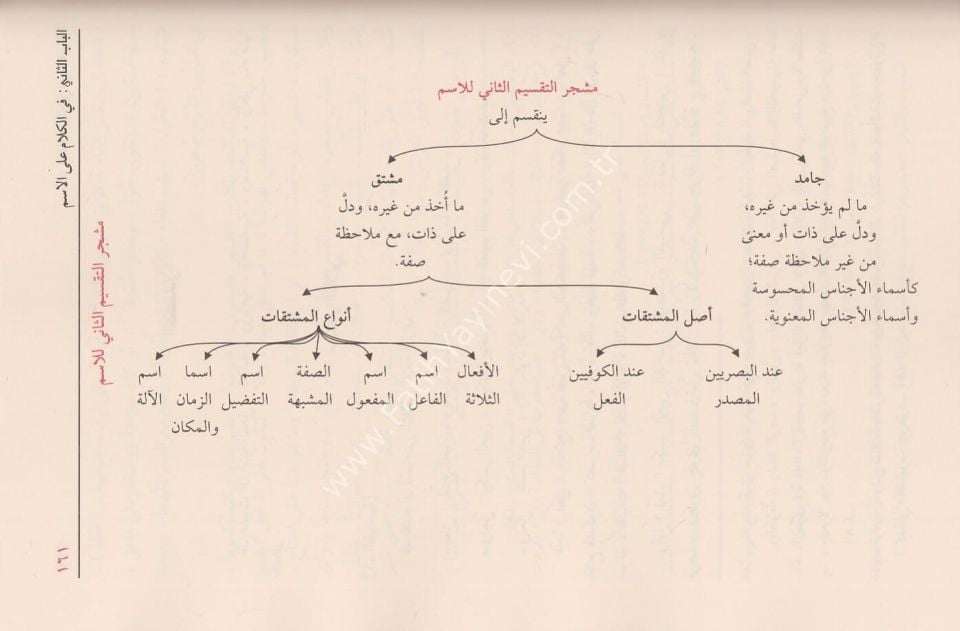 الباب الثاني: في الكلام على الاسم
مشجر التقسيم الثاني للاسم
مشجر التقسيم الثاني للاسم
ينقسم إلى
جامد
ما لم يؤخذ من غيره،
ودلَّ على ذات أو معنىً
من غير ملاحظة صفة؛
كأسماء الأجناس المحسوسة
وأسماء الأجناس المعنوية.
مشتق
ما أُخذ من غيره، ودلَّ
على ذات، مع ملاحظة
صفة.
أصل المشتقات
عند البصريين
المصدر
عند الكوفيين
الفعل
أنواع المشتقات
الأفعال
الثلاثة
اسم
الفاعل
اسم
المفعول
الصفة
المشبهة
اسم
التفضيل
اسما
الزمان
والمكان
اسم
الآلة
١٦١
www.FatihYayinevi.com.tr